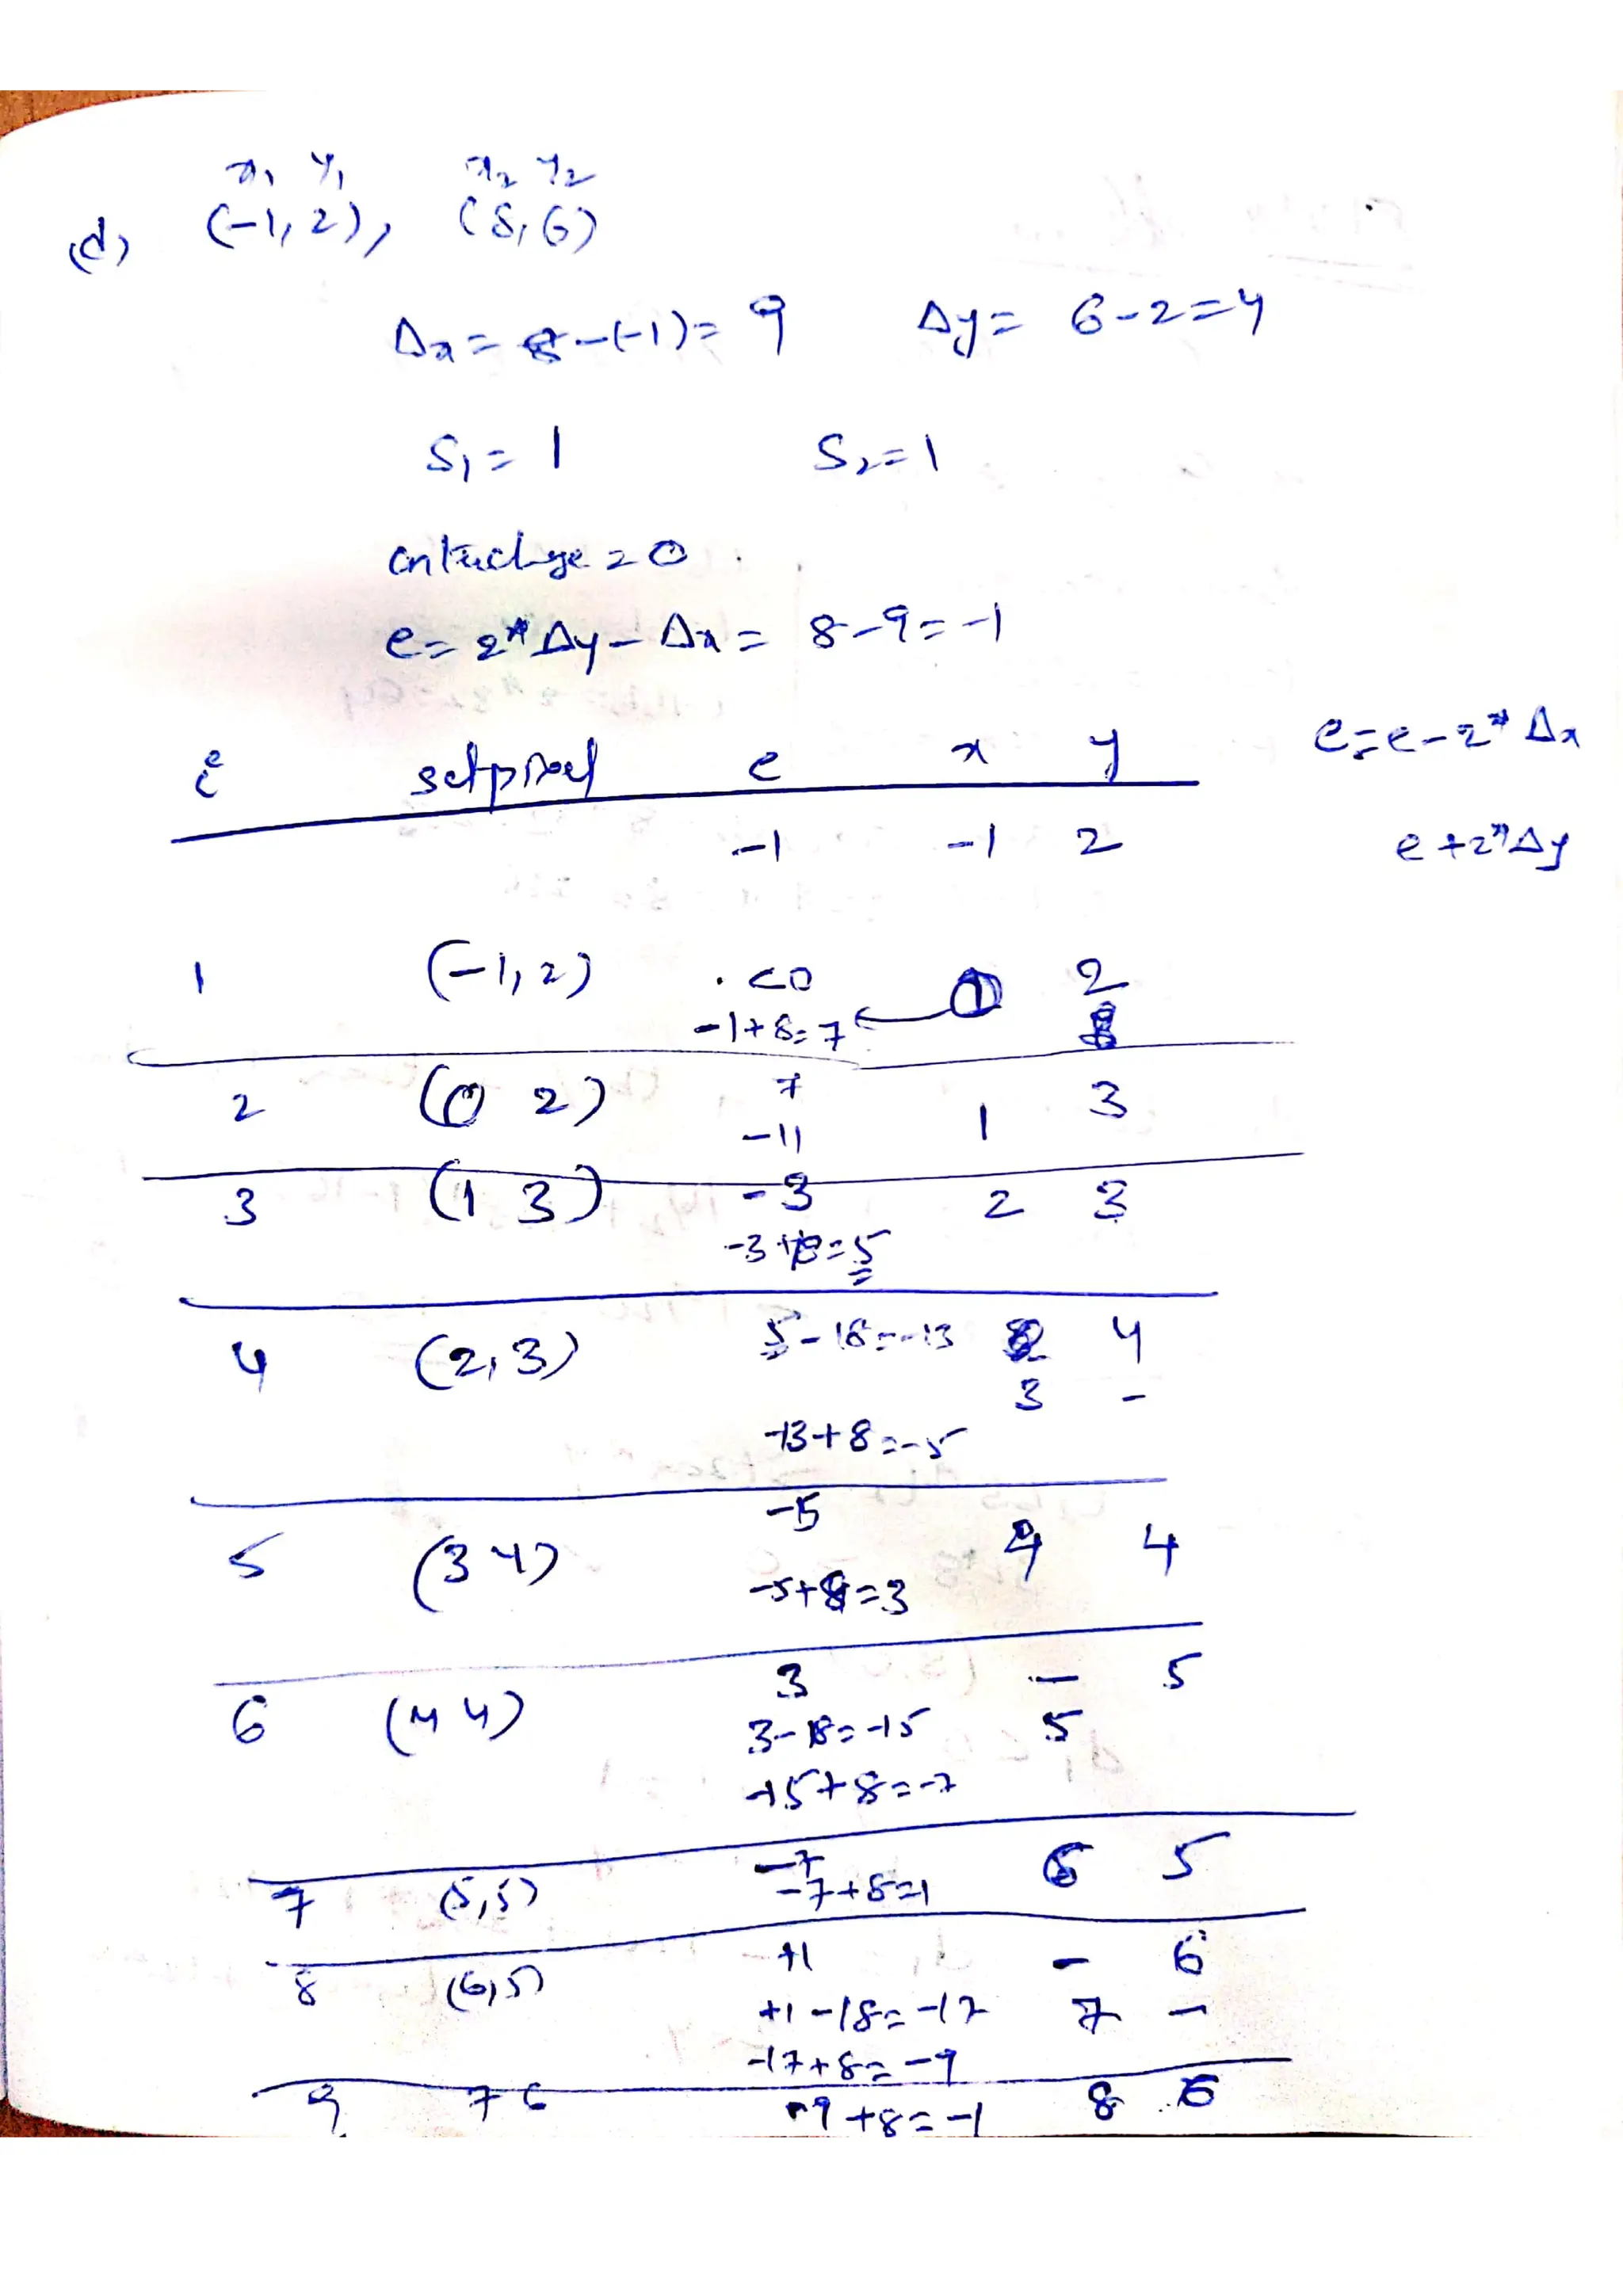 x₁ y₁ x₂ y₂
(d) (-1, 2), (8, 6)
Δx = 8-(-1) = 9 Δy = 6-2 = 4
S₁ = 1 S₂ = 1
= 0
e = 2*Δy - Δx = 8-9 = -1
i setpixel e x y e = e-2*Δx
-1 -1 2 e+2*Δy
1 (-1, 2) <0 2
-1+8=7
2 (0 2) 7 3
-11 1
3 (1 3) -3 2 3
-3+8=5
4 (2, 3) 5-18=-13 4
3 -
-13+8=-5
-5
5 (3 4) 4 4
-5+8=3
3 - 5
6 (4 4) 3-18=-15 5
-15+8=-7
-7 6 5
7 (5,5) -7+8=1
+1 - 6
8 (6,5) +1-18=-17 7 -
-17+8=-9
9 7 6 -9+8=-1 8 6